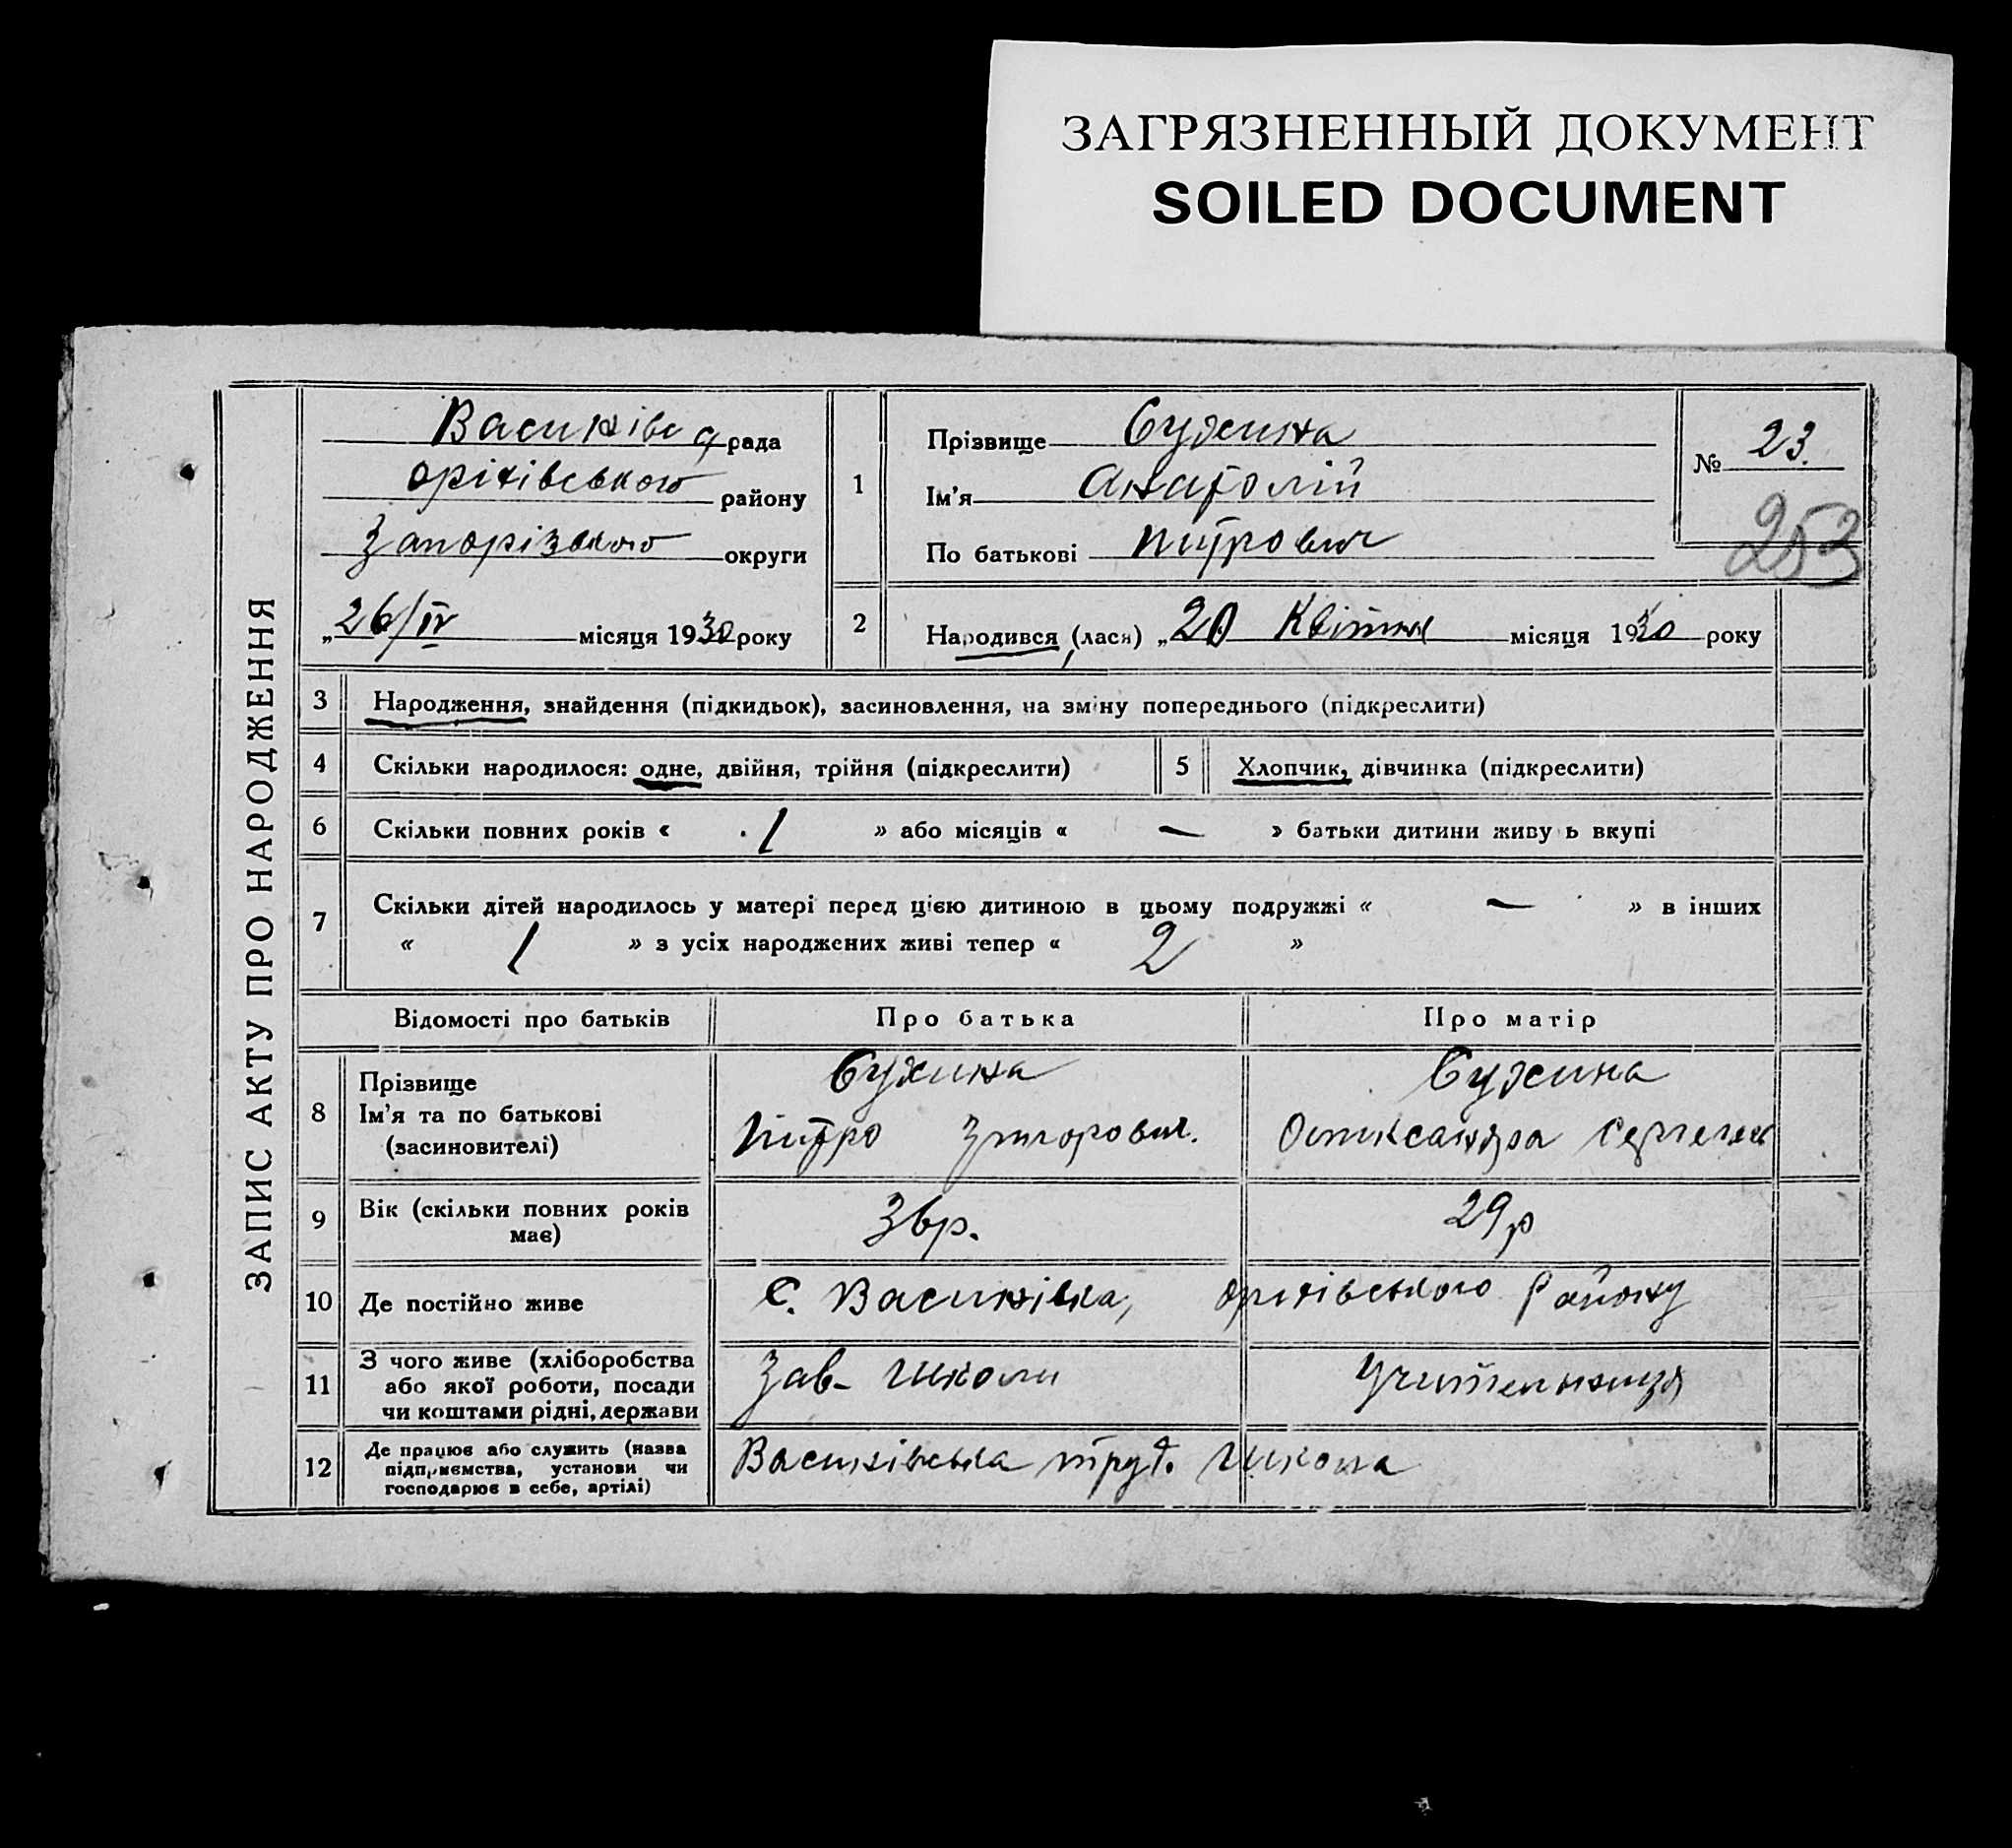 ЗАГРЯЗНЕННЫЙ ДОКУМЕНТ
SOILED DOCUMENT
ЗАПИС АКТУ ПРО НАРОДЖЕННЯ
рада
Оріхівського району
Запорізького округи
„26/IV місяця 1930 року
1
Прізвище
Ім'я Анатолій
По батькові Петрович
№ 23.
253
2 Народився (лася) „20 Квітня місяця 1930 року
3 Народження, знайдення (підкидьок), засиновлення, на зміну попереднього (підкреслити)
4 Скільки народилося: одне, двійня, трійня (підкреслити) 5 Хлопчик, дівчинка (підкреслити)
6 Скільки повних років « 1 » або місяців « — » батьки дитини живуть вкупі
7 Скільки дітей народилось у матері перед цією дитиною в цьому подружжі « — » в інших
« 1 » з усіх народжених живі тепер « 2 »
Відомості про батьків Про батька Про матір
8 Прізвище
Ім'я та по батькові
(засиновителі)
Петро Григорович. Олександра
9 Вік (скільки повних років
має)
36р. 29р
10 Де постійно живе с. Василівка, Оріхівського району
11 З чого живе (хліборобства
або якої роботи, посади
чи коштами рідні, держави
Зав- школи Учителька
12 Де працює або служить (назва
підприємства, установи чи
господарює в себе, артілі)
труд. школа